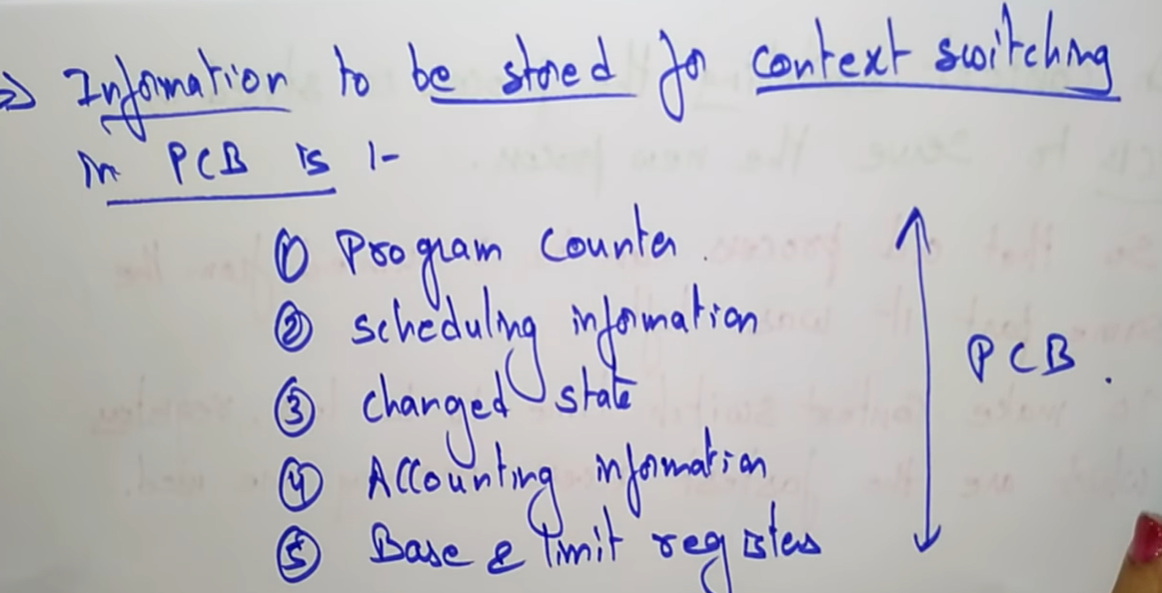 ⇒ Information to be stored for context switching
in PCB is :-
① Program Counter.
② scheduling information
③ changed state
④ Accounting information
⑤ Base & limit registers
PCB.